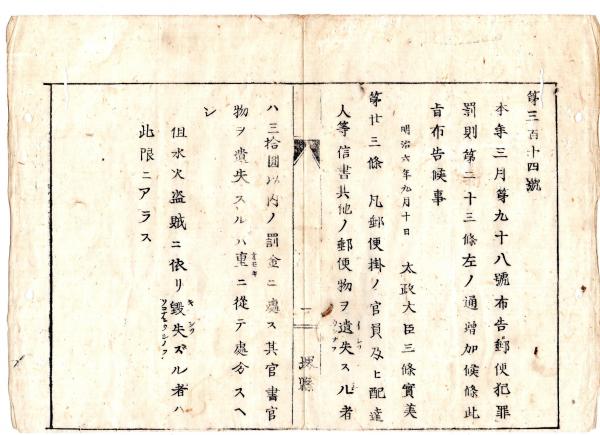 第三百十四號
本年三月第九十八號布告郵便犯罪
罰則第二十三條左ノ通增加候條此
旨布告候事
明治六年九月十日 太政大臣三條實美
第廿三條 凡郵便掛ノ官員及ヒ配達
人等信書其他ノ郵便物ヲ遺失スル者
一
堺縣
ハ三拾圓以內ノ罰金ニ處ス其官書官
物ヲ遺失スルハ重ニ從テ處分スヘ
オモキ
シ
但水火盜賊ニ依リ毀失スル者ハ
キシツ
此限ニアラス